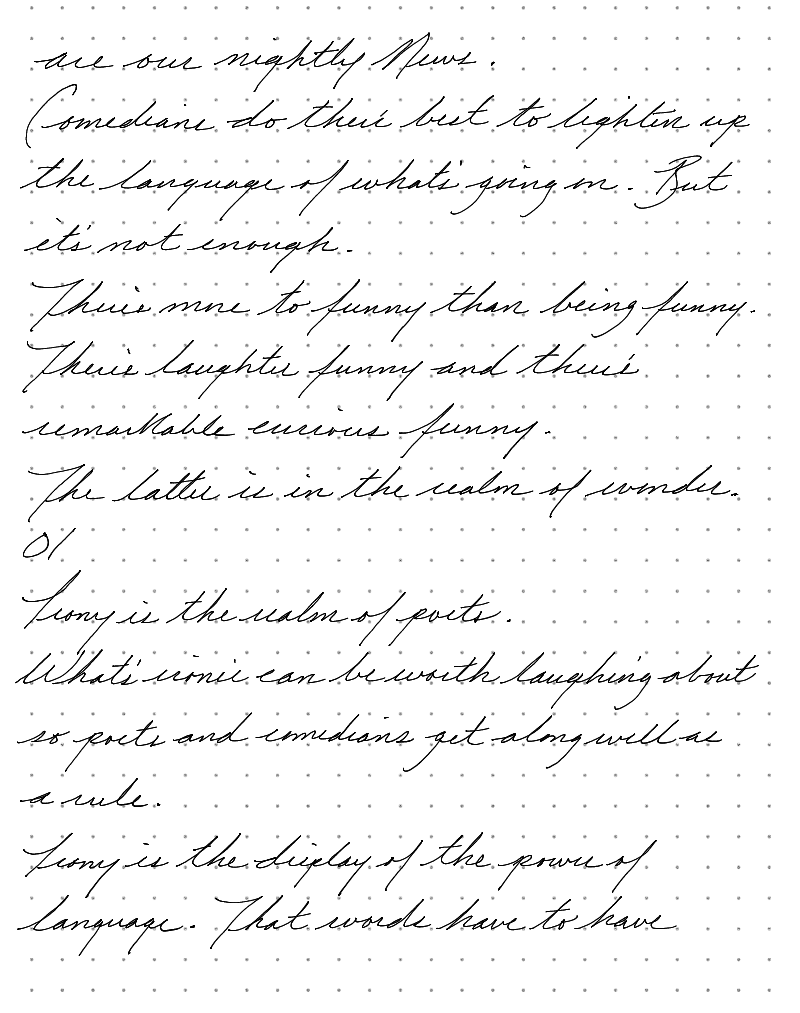 are our nightly News.
Comedians do their best to lighten up
the language of what's going on. But
it's not enough.
There's more to funny than being funny.
There's laughter funny and there's
remarkable curious funny.
The latter is in the realm of wonder.
01
Irony is the realm of poets.
What's ironic can be worth laughing about
so poets and comedians get along well as
a rule.
Irony is the display of the power of
language. That words have to have